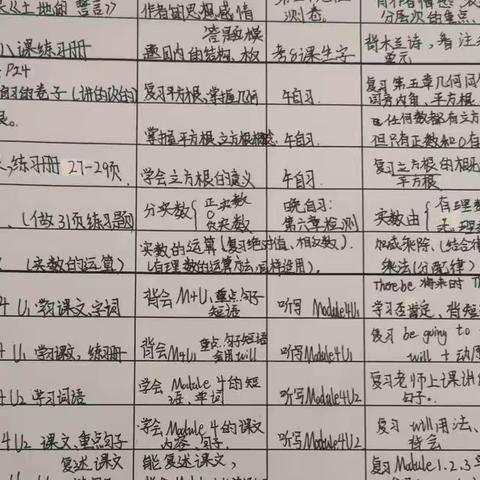 《土地的誓言》
作者的思想感情
测卷。
分层次的重点、
八课练习册
答题模
题国内的结构、权
考8课生字
背木兰诗,看注
单元
P24
复习平方根、掌握几何
午自习.
复习第五章几何问
同旁内角、平方根
任何数都有立方
但只有正数和0有
掌握平方根、立方根概念.
午自习.
练习册 27-29页.
学会立方根的意义
午自习.
复习立方根的概
平方根
(做31页练习题)
分实数 { 正实数
0
负实数
晚自习:
第六章检测
实数由 { 有理数
无理
(实数的运算)
实数的运算(复习绝对值、相反数).
(有理数的运算方法,同样适用).
加减乘除、(结合律
乘法(分配律)
There be 将来时 Th
4 U1 学习课文,字词
背会M4U1重点句子
短语
听写 Module4U1
学习否定、背短
4 U1 学习课文,练习册
背会M4U1 重点、句子短语
会用will
听写Module4U1
复习 be going to
will + 动原
4U2 学习词语
学会 Module 4的短
语、单词
听写Module4U2
复习老师上课讲
句子。
4U2 课文、重点句子
学会 Module 4的课文
内容、句子.
听写Module4U2
复习 will用法、
背会
复述课文
能复述课文,
复习Module1.2.3